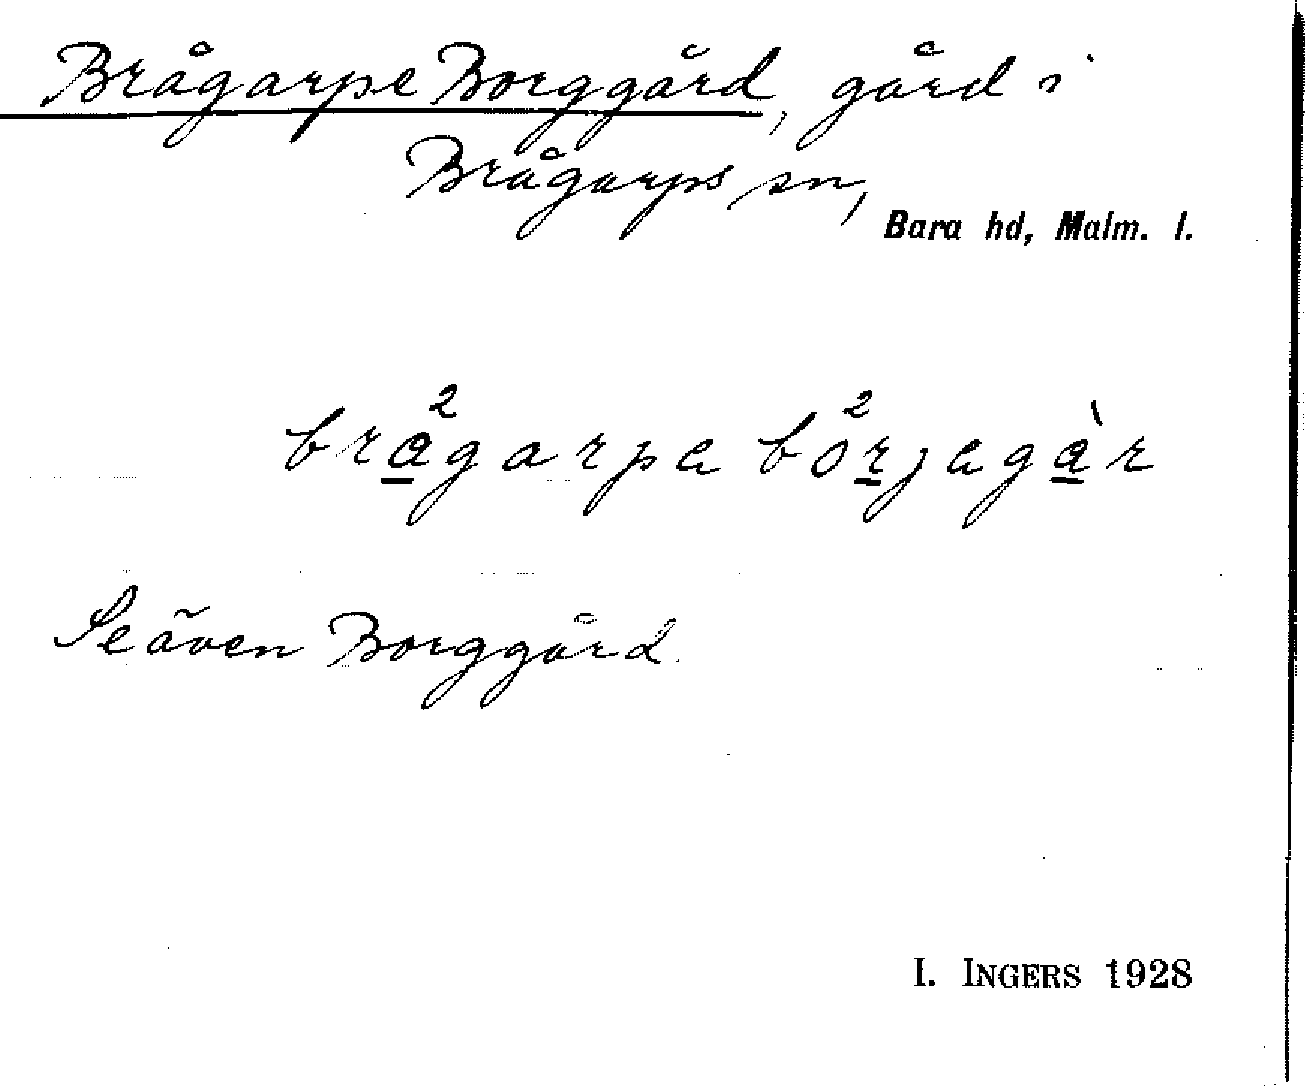 Brågarpe Borggård, gård i
Brågarps sn,
Bara hd, Malm. l.
brа̲²garpa bor̲²jagà̲r
Se även Borggård.
I. INGERS 1928